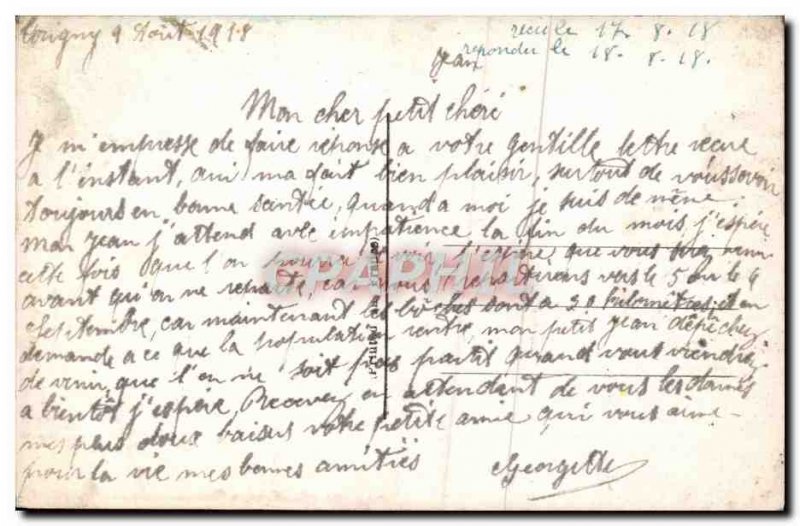 Torigny 9 Août 1918
recu le 17. 8. 18
repondu le 18. 8. 18.
Jean
Mon cher petit chéri
Je m'empresse de faire réponse a votre gentille lettre recue
a l'instant, qui ma fait bien plaisir, surtout de vous savoir
toujours en bonne santée, quand a moi je suis de même
Mon Jean j'attend avec impatience la fin du mois, j'espère
cette fois que l'on pourra voir j'espère, que vous
avant qu'on ne reparte, car nous vers le 5 ou le 6
septembre, car maintenant les bôches sont a 30 kilomètres, et on
demande a ce que la population rentre, mon petit Jean dépêchez
de venir, que l'on ne soit pas partit quand vous viendrez
a bientôt j'espère, Recevez en attendant de vous les donner
mes plus doux baisers votre petite amie qui vous aime
pour la vie mes bonnes amitiés
Georgette
CPAPHIL